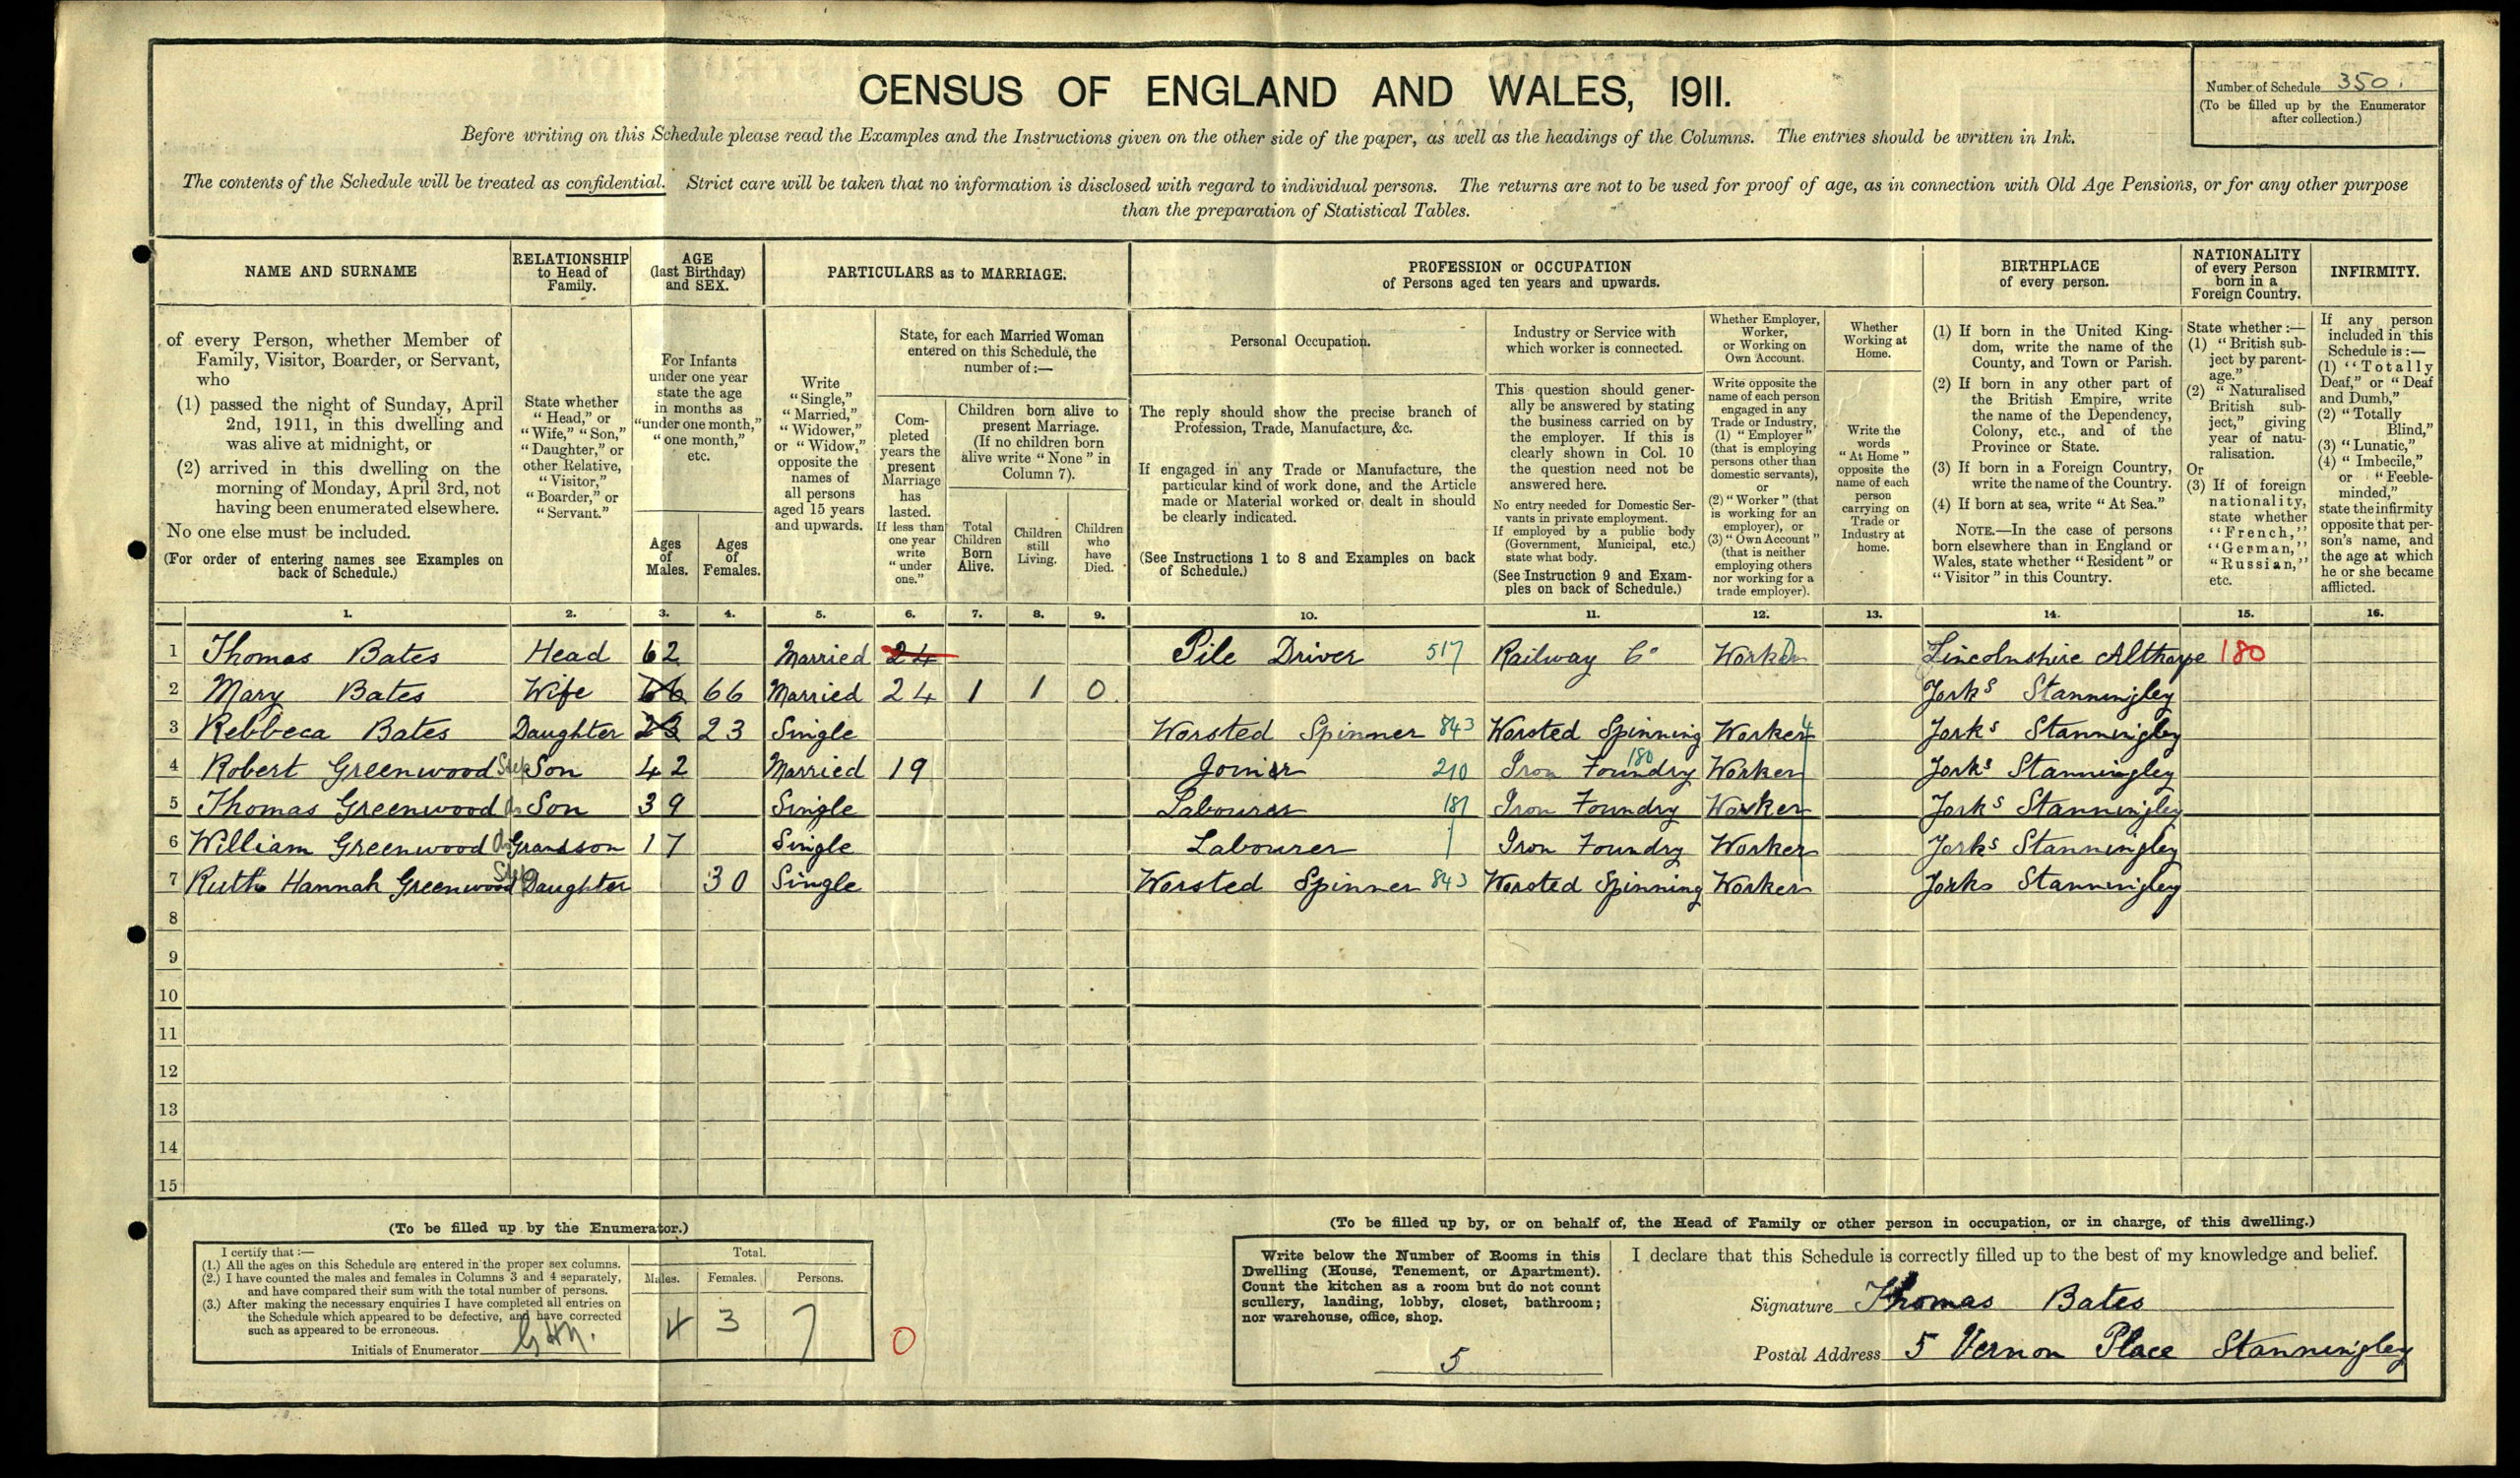 CENSUS OF ENGLAND AND WALES, 1911.
Number of Schedule 350.
(To be filled up by the Enumerator
after collection.)
Before writing on this Schedule please read the Examples and the Instructions given on the other side of the paper, as well as the headings of the Columns. The entries should be written in Ink.
The contents of the Schedule will be treated as confidential. Strict care will be taken that no information is disclosed with regard to individual persons. The returns are not to be used for proof of age, as in connection with Old Age Pensions, or for any other purpose
than the preparation of Statistical Tables.
NAME AND SURNAME
of every Person, whether Member of
Family, Visitor, Boarder, or Servant,
who
(1) passed the night of Sunday, April
2nd, 1911, in this dwelling and
was alive at midnight, or
(2) arrived in this dwelling on the
morning of Monday, April 3rd, not
having been enumerated elsewhere.
No one else must be included.
(For order of entering names see Examples on
back of Schedule.)
RELATIONSHIP
to Head of
Family.
State whether
"Head," or
"Wife," "Son,"
"Daughter," or
other Relative,
"Visitor,"
"Boarder," or
"Servant."
AGE
(last Birthday)
and SEX.
For Infants
under one year
state the age
in months as
"under one month,"
"one month,"
etc.
Ages
of
Males.
Ages
of
Females.
PARTICULARS as to MARRIAGE.
Write
"Single,"
"Married,"
"Widower,"
or "Widow,"
opposite the
names of
all persons
aged 15 years
and upwards.
State, for each Married Woman
entered on this Schedule, the
number of:—
Com-
pleted
years the
present
Marriage
has
lasted.
If less than
one year
write
"under
one."
Children born alive to
present Marriage.
(If no children born
alive write "None" in
Column 7).
Total
Children
Born
Alive.
Children
still
Living.
Children
who
have
Died.
PROFESSION or OCCUPATION
of Persons aged ten years and upwards.
Personal Occupation.
The reply should show the precise branch of
Profession, Trade, Manufacture, &c.
If engaged in any Trade or Manufacture, the
particular kind of work done, and the Article
made or Material worked or dealt in should
be clearly indicated.
(See Instructions 1 to 8 and Examples on back
of Schedule.)
Industry or Service with
which worker is connected.
This question should gener-
ally be answered by stating
the business carried on by
the employer. If this is
clearly shown in Col. 10
the question need not be
answered here.
No entry needed for Domestic Ser-
vants in private employment.
If employed by a public body
(Government, Municipal, etc.)
state what body.
(See Instruction 9 and Exam-
ples on back of Schedule.)
Whether Employer,
Worker,
or Working on
Own Account.
Write opposite the
name of each person
engaged in any
Trade or Industry,
(1) "Employer"
(that is employing
persons other than
domestic servants),
or
(2) "Worker" (that
is working for an
employer), or
(3) "Own Account"
(that is neither
employing others
nor working for a
trade employer).
Whether
Working at
Home.
Write the
words
"At Home"
opposite the
name of each
person
carrying on
Trade or
Industry at
home.
BIRTHPLACE
of every person.
(1) If born in the United King-
dom, write the name of the
County, and Town or Parish.
(2) If born in any other part of
the British Empire, write
the name of the Dependency,
Colony, etc., and of the
Province or State.
(3) If born in a Foreign Country,
write the name of the Country.
(4) If born at sea, write "At Sea."
NOTE.—In the case of persons
born elsewhere than in England or
Wales, state whether "Resident" or
"Visitor" in this Country.
NATIONALITY
of every Person
born in a
Foreign Country.
State whether:—
(1) "British sub-
ject by parent-
age."
(2) "Naturalised
British sub-
ject," giving
year of natu-
ralisation.
Or
(3) If of foreign
nationality,
state whether
"French,"
"German,"
"Russian,"
etc.
INFIRMITY.
If any person
included in this
Schedule is:—
(1) "Totally
Deaf," or "Deaf
and Dumb,"
(2) "Totally
Blind,"
(3) "Lunatic,"
(4) "Imbecile,"
or "Feeble-
minded,"
state the infirmity
opposite that per-
son's name, and
the age at which
he or she became
afflicted.
1. 2. 3. 4. 5. 6. 7. 8. 9. 10. 11. 12. 13. 14. 15. 16.
1 Thomas Bates Head 62 Married 24 Pile Driver 517 Railway Co Worker Lincolnshire Althorpe 180
2 Mary Bates Wife 66 66 Married 24 1 1 0 Yorks Stanningley
3 Rebbeca Bates Daughter 23 23 Single Worsted Spinner 843 Worsted Spinning Worker Yorks Stanningley
4 Robert Greenwood Step Son 42 Married 19 Joiner 210 Iron Foundry 180 Worker Yorks Stanningley
5 Thomas Greenwood do Son 39 Single Labourer 181 Iron Foundry Worker Yorks Stanningley
6 William Greenwood do Grandson 17 Single Labourer Iron Foundry Worker Yorks Stanningley
7 Ruth Hannah Greenwood Step Daughter 30 Single Worsted Spinner 843 Worsted Spinning Worker Yorks Stanningley
8
9
10
11
12
13
14
15
(To be filled up by the Enumerator.)
I certify that:—
(1.) All the ages on this Schedule are entered in the proper sex columns.
(2.) I have counted the males and females in Columns 3 and 4 separately,
and have compared their sum with the total number of persons.
(3.) After making the necessary enquiries I have completed all entries on
the Schedule which appeared to be defective, and have corrected
such as appeared to be erroneous.
Initials of Enumerator
Total.
Males. Females. Persons.
4 3 7
0
(To be filled up by, or on behalf of, the Head of Family or other person in occupation, or in charge, of this dwelling.)
Write below the Number of Rooms in this
Dwelling (House, Tenement, or Apartment).
Count the kitchen as a room but do not count
scullery, landing, lobby, closet, bathroom;
nor warehouse, office, shop.
5
I declare that this Schedule is correctly filled up to the best of my knowledge and belief.
Signature Thomas Bates
Postal Address 5 Vernon Place Stanningley